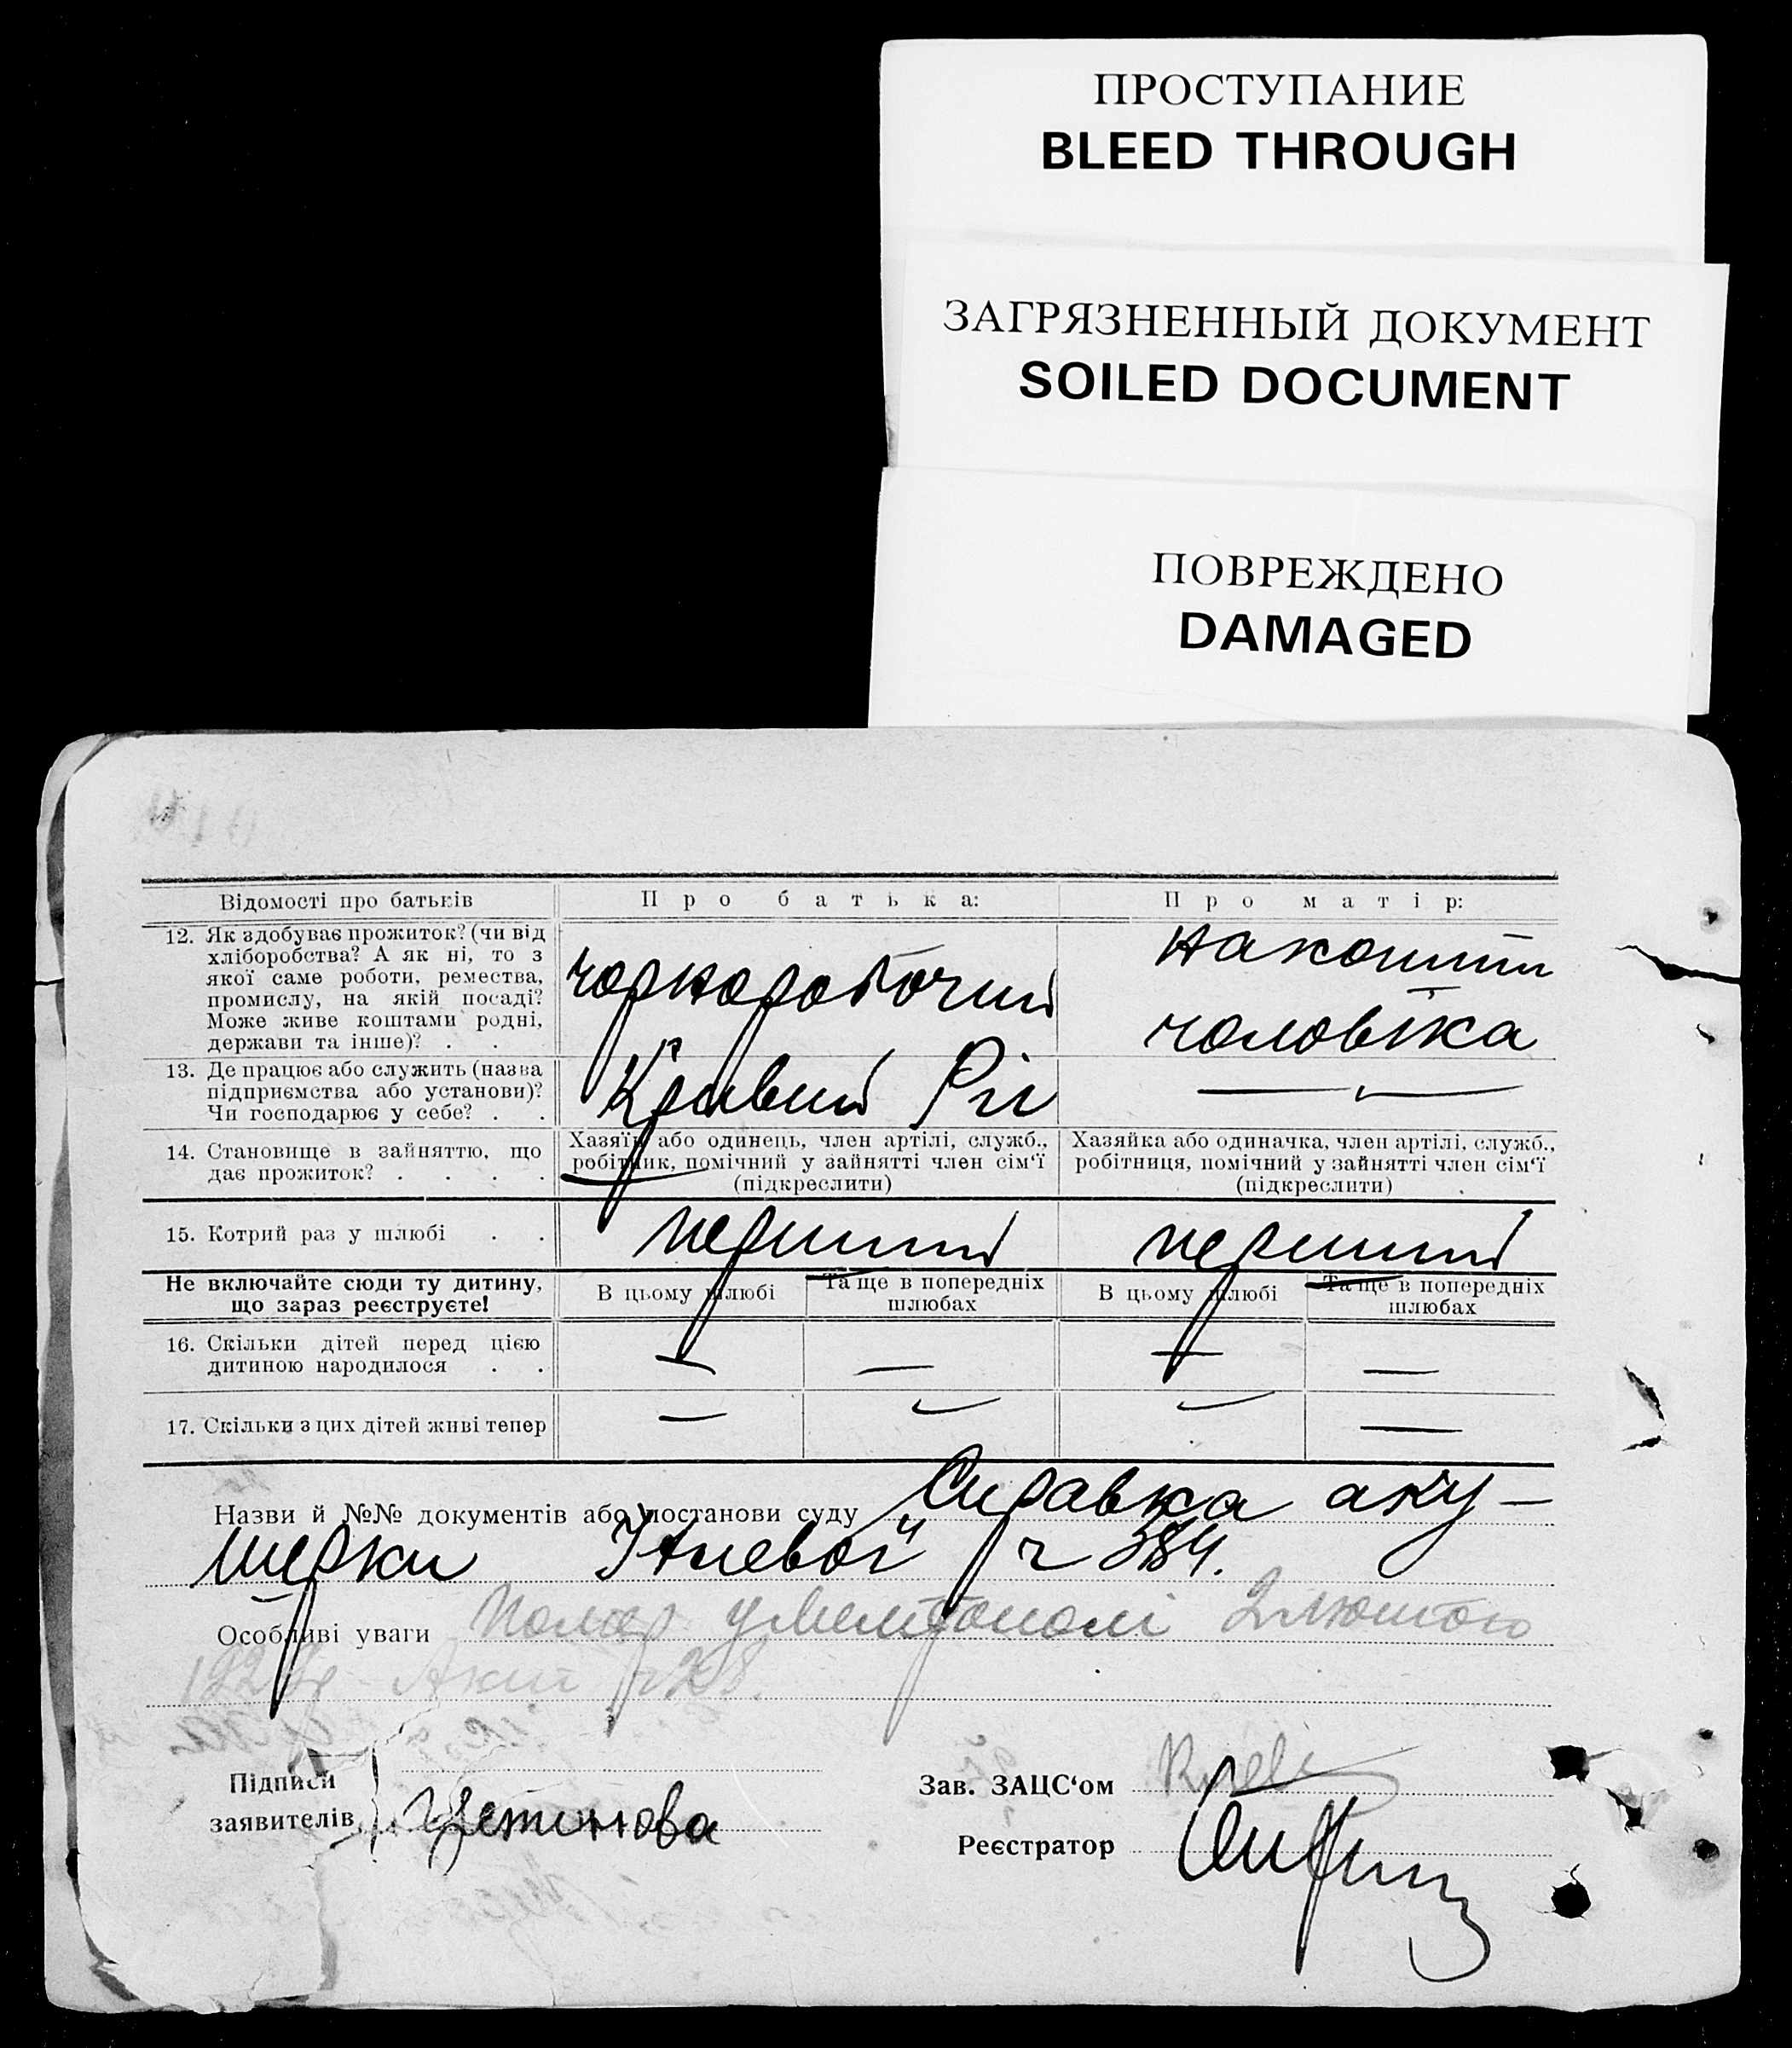 ПРОСТУПАНИЕ
BLEED THROUGH
ЗАГРЯЗНЕННЫЙ ДОКУМЕНТ
SOILED DOCUMENT
ПОВРЕЖДЕНО
DAMAGED
Відомості про батьків
Про батька:
Про матір:
12. Як здобуває прожиток? (чи від
хліборобства? А як ні, то з
якої саме роботи, ремества,
промислу, на якій посаді?
Може живе коштами родні,
держави та інше)? . .
чорноробочий
на кошти
чоловіка
13. Де працює або служить (назва
підприємства або установи)?
Чи господарює у себе? . .
Кривий Ріг
—
14. Становище в зайняттю, що
дає прожиток? . . . .
Хазяїн або одинець, член артілі, служб.,
робітник, помічний у зайнятті член сім'ї
(підкреслити)
Хазяйка або одиначка, член артілі, служб.,
робітниця, помічний у зайнятті член сім'ї
(підкреслити)
15. Котрий раз у шлюбі . .
перший
перший
Не включайте сюди ту дитину,
що зараз реєструєте!
В цьому шлюбі
Та ще в попередніх
шлюбах
В цьому шлюбі
Та ще в попередніх
шлюбах
16. Скільки дітей перед цією
дитиною народилося . .
— — — —
17. Скільки з цих дітей живі тепер
— — — —
Назви й №№ документів або постанови суду Справка аку-
шерки ч 384.
Особливі уваги Помер у Мелітополі 2 лютого
Акт ч
Підписи
заявителів
Зав. ЗАЦС'ом
Реєстратор